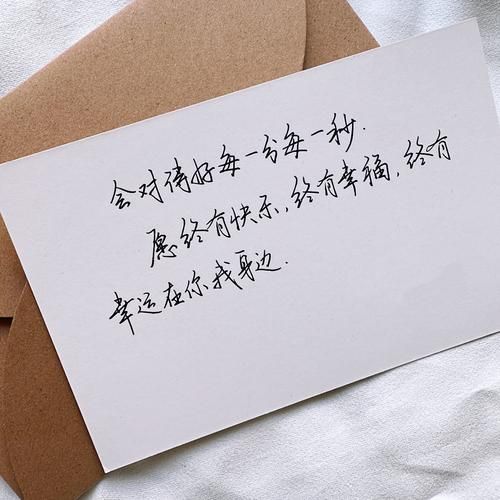 会对待好每一分每一秒.
愿终有快乐,终有幸福,终有
幸运在你我身边.